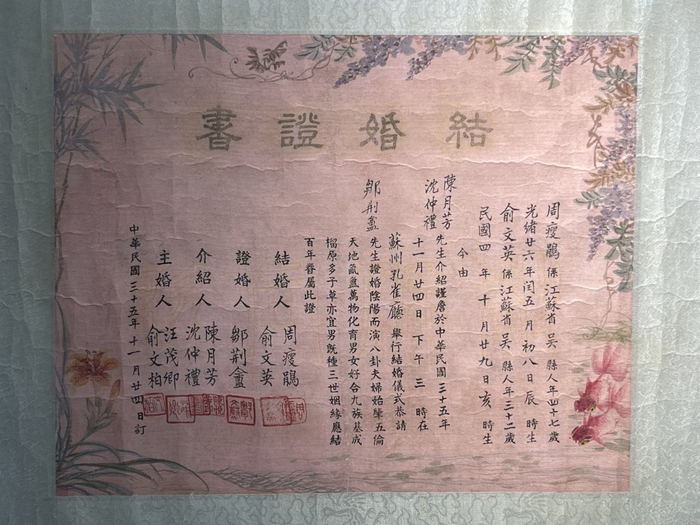 結婚證書
周瘦鵑係江蘇省吳縣人年四十七歲
光緒廿六年閏五月初八日辰時生
俞文英係江蘇省吳縣人年三十二歲
民國四年十月廿九日亥時生
今由
陳月芳
沈仲禮先生介紹謹詹於中華民國三十五年
十一月廿四日下午三時在
蘇州孔雀廳舉行結婚儀式恭請
鄒荆盦先生證婚陰陽而演八卦夫婦始肇五倫
天地氤氳萬物化育男女好合九族基成
榴原多子草亦宜男既種三世姻緣應結
百年眷屬此證
結婚人 周瘦鵑
俞文英
證婚人 鄒荆盦
介紹人 陳月芳
沈仲禮
主婚人 汪茂卿
俞文柏
中華民國三十五年十一月廿四日訂